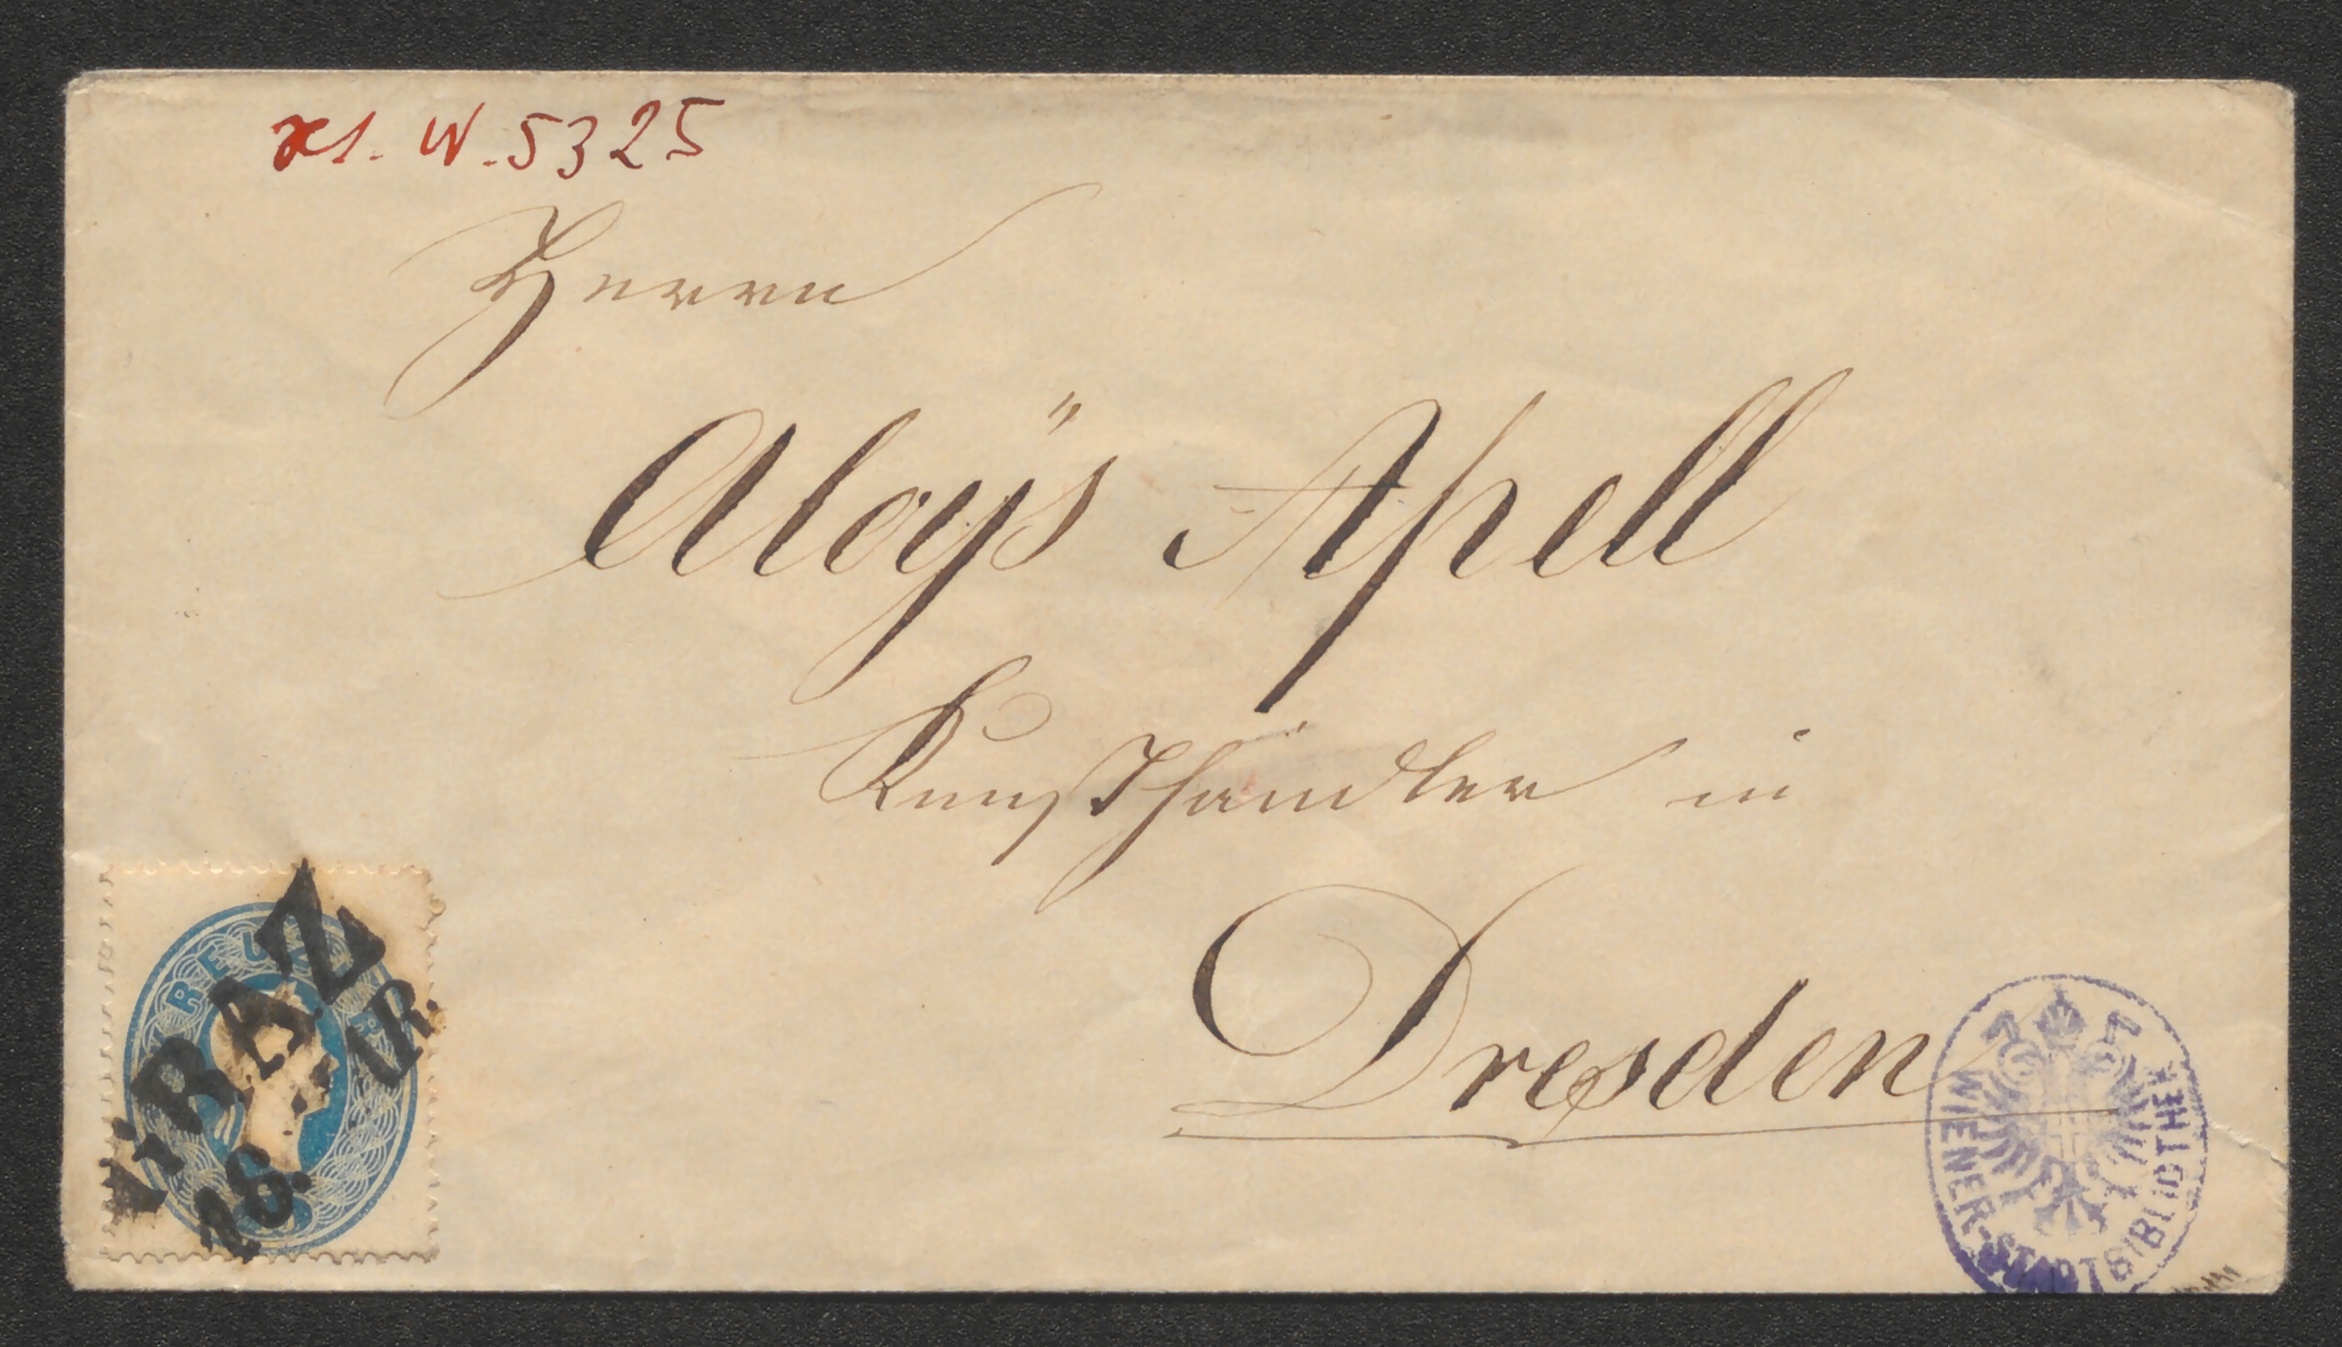 x1. N. 5325
Herrn
Aloÿs Apell
Kunsthändler in
Dresden
GRAZ
18.
WIENER STADTBIBLIOTHEK